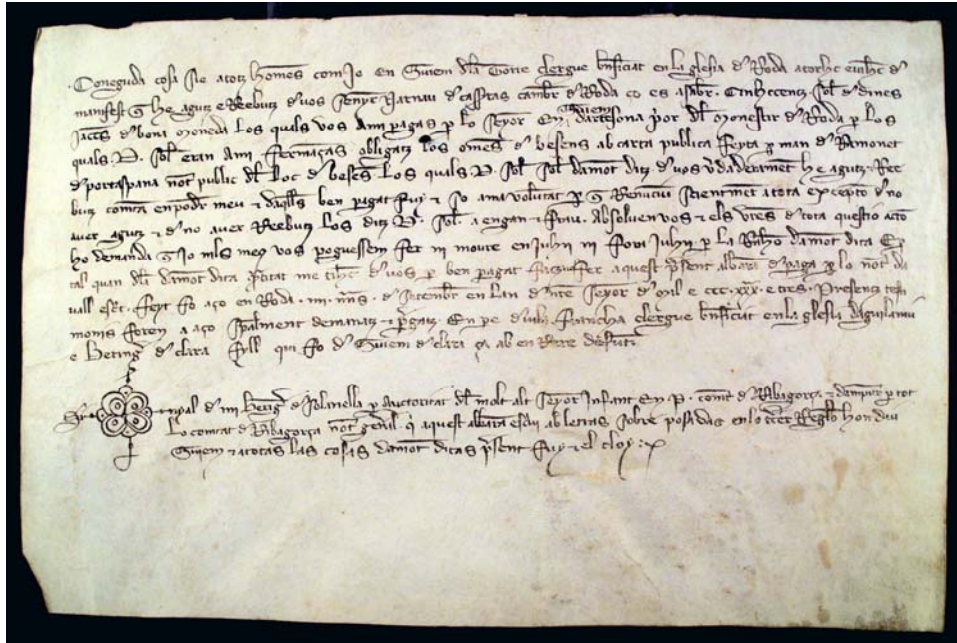 Coneguda cosa sie a totz homes com Jo en Guiem dla Torre clergue bnficiat en la glesia d Roda atorch e
manifest q he agutz e Reebutz d vos senyer Narnau d cambr d Roda co es asabr. Cinhccentz sol d dines
Jacces d bona moneda Los quals vos Ami pagas p lo seyor En Guiem dartesona prior dl monestir d Roda p Los
quals D. sol eran Ami fermaças obligatz los omes d besens ab carta publica feyta p man d Remonet
d portaspana not public dl Loc d besens Los quals D. sol damot ditz d vos vdaderament he agutz Ree
butz en podr meu e daqlls ben pagat fuy e so ama voluntat p q Renunciu scientment a tota excepcio d no
aver agutz e d no aver Reebutz Los ditz D. sol. a engan e frau. Absolven vos e els vres d tota questio
ho demanda q Jo mls meu vos poguessem fer ni moure en Juhii ni fora Juhii p la Raho damot dita En
tal quan dla damot dita qtitat me d vos p ben pagat fer aquest psent albara d paga p lo not da
vall escr. feyt fo aço en Roda .iiii. nns. d Setembr en Lan d nre seyor d mil e ccc.xxx. e tres. Presens testi
monis foren a aço spalment demanatz e pgatz. En pe d francha clergue bnficiat en la glesia daguilaniu
e Bereng d clara fyll qui fo d Guiem d clara ça ab en Rere
nyal d mi Bereng d Solanella p Auctoritat dl molt alt seyor Infant En P. comt d Ribagorça e p tot
Lo comtat d Ribagorça not genral qi aquest albara escriu ab letras sobre posadas en lo tcer Reglo hon diu
Guiem e a totas las cosas damot ditas psent fuy e el cloy